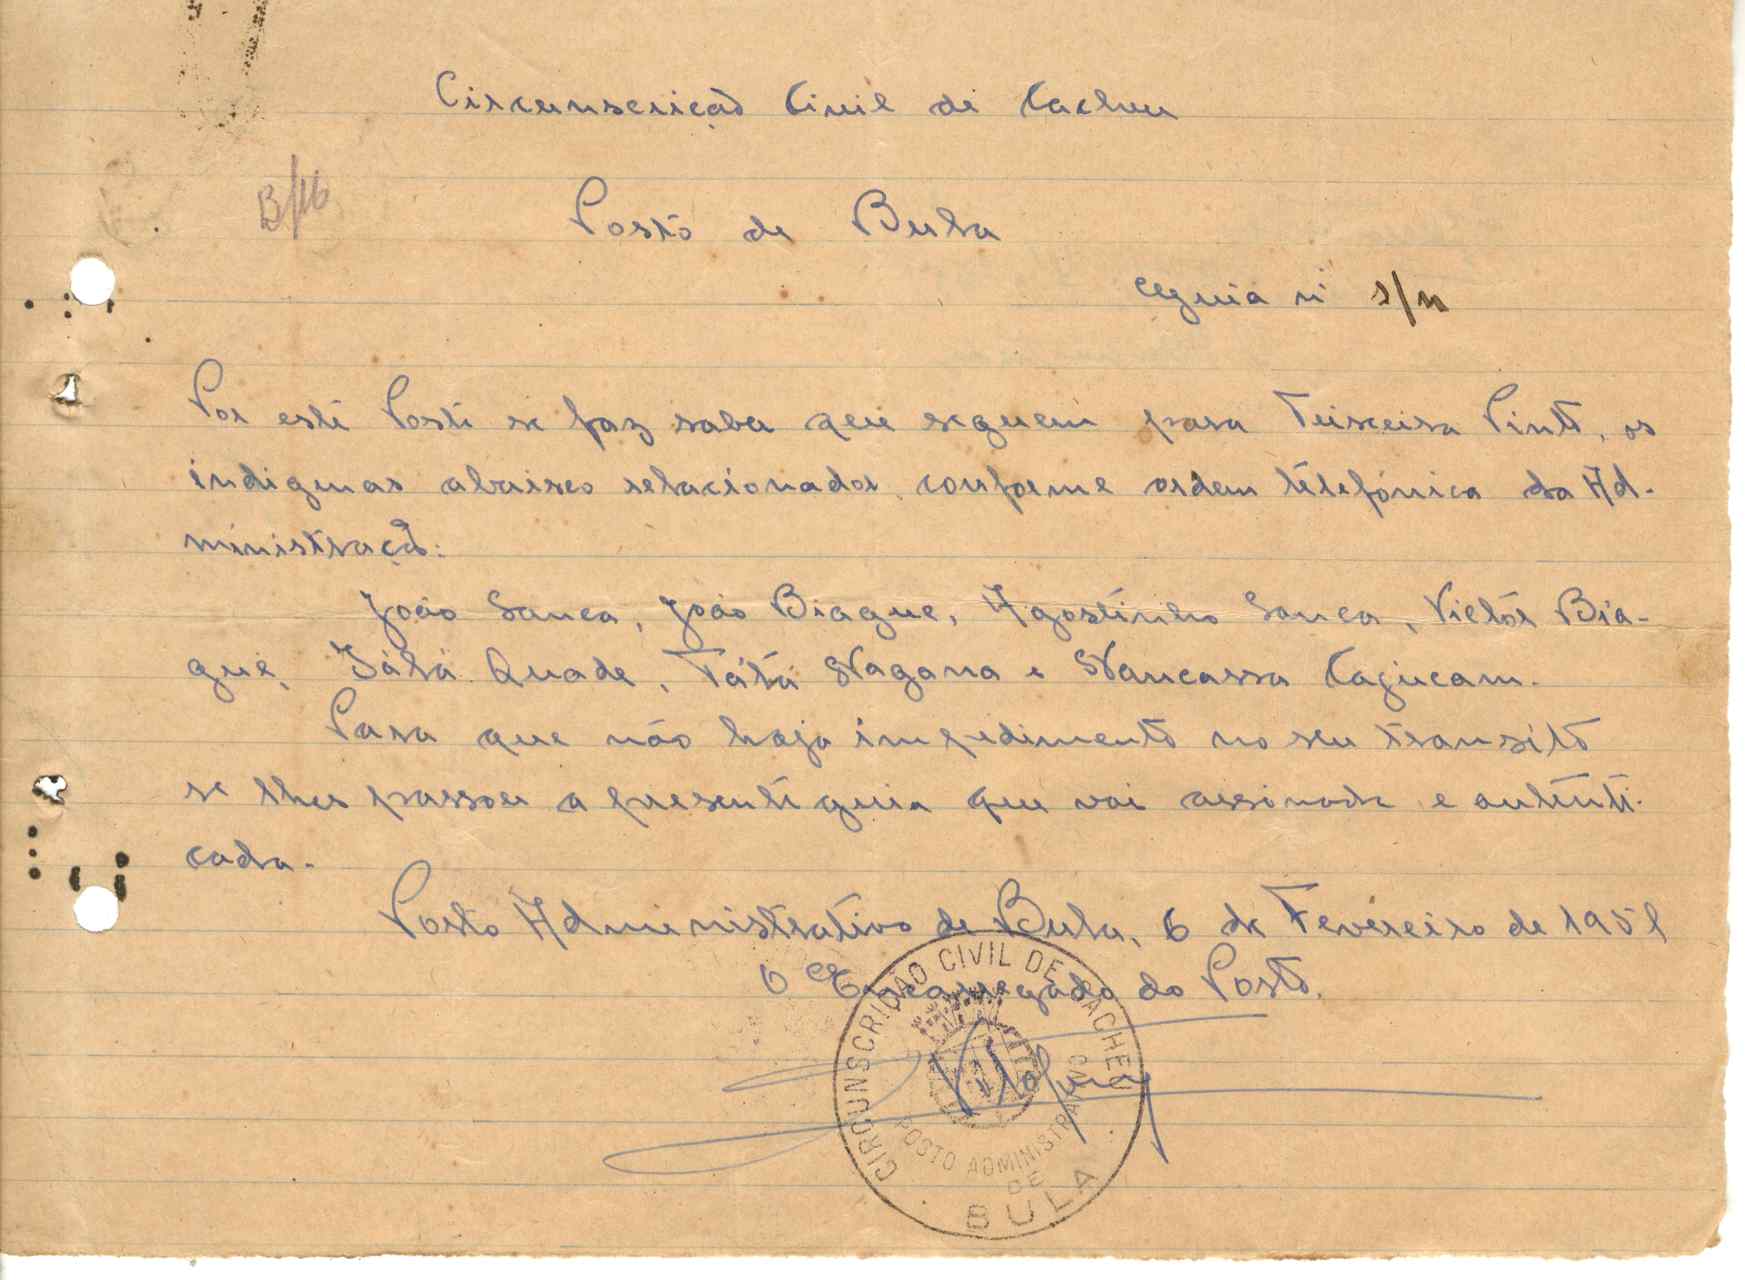 Circunscrição Civil de Cacheu
B/16
Posto de Bula
Guia nº s/n
Por este Posto se faz saber que seguem para Teixeira Pinto, os
indigenas abaixo relacionados, conforme ordem teléfónica da Ad-
ministração:
João Sanca, João Biague, Agostinho Sanca, Victór Bia-
gue, Iálá Quade, Tátá Nagana e Nancassa Cajucam.
Para que não haja impedimento no seu transito
se lhes passou a presente guia que vai assinada e autenti-
cada.
Posto Administrativo de Bula, 6 de Fevereiro de 1951
O Encarregado do Posto,
CIRCUNSCRIÇÃO CIVIL DE CACHEU
POSTO ADMINISTRATIVO
DE
BULA